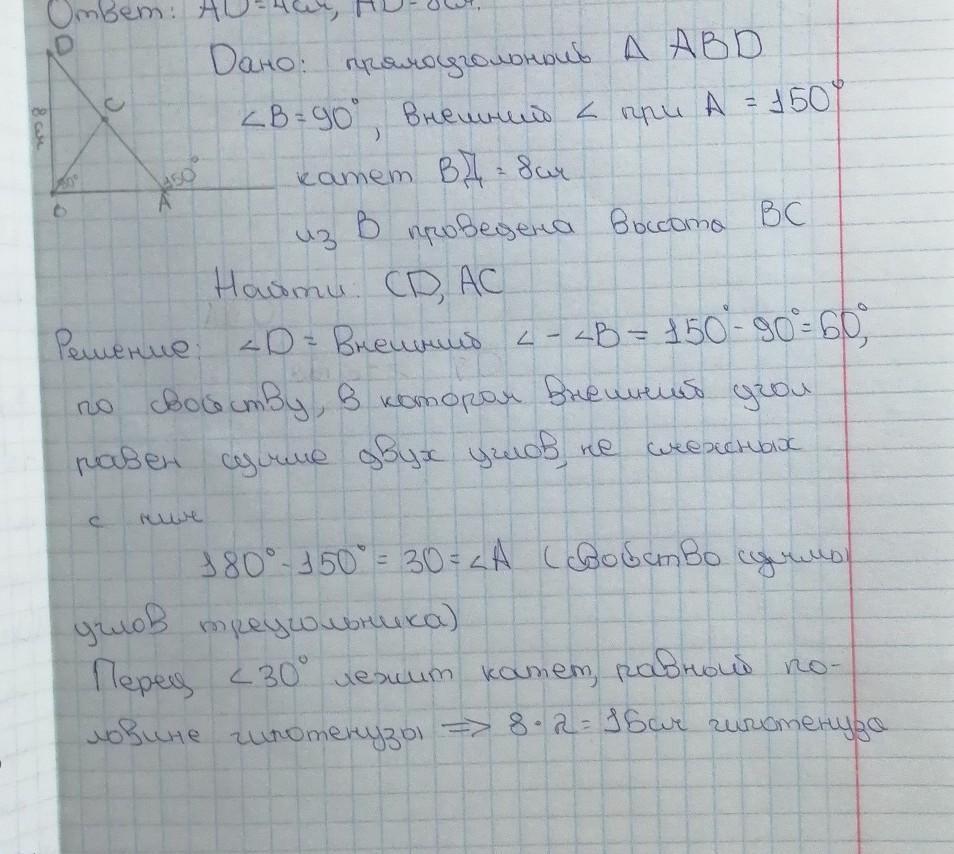 Ответ: AD=4см, AD=8см.
D
C
8 см
90°
150°
B
A
Дано: прямоугольный Δ ABD
∠B=90°, внешний ∠ при A = 150°
катет BД = 8см
из B проведена высота BC
Найти: CD, AC
Решение: ∠D = Внешний ∠ - ∠B = 150° - 90° = 60°,
по свойству, в котором внешний угол
равен сумме двух углов, не смежных
с ним
180° - 150° = 30 = ∠A (свойство суммы
углов треугольника)
Перед ∠30° лежит катет, равный по-
ловине гипотенузы => 8 · 2 = 16см гипотенуза